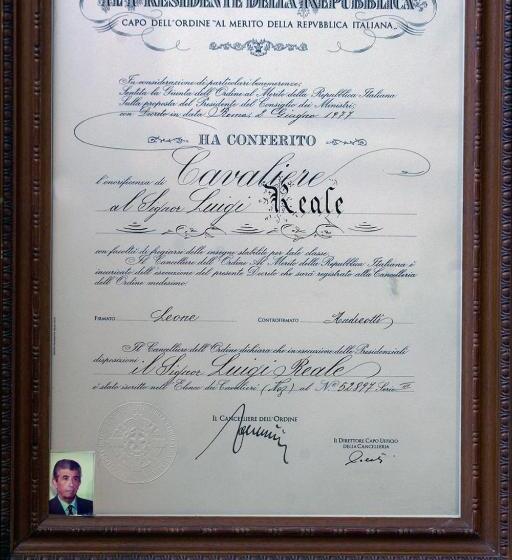 IL PRESIDENTE DELLA REPUBBLICA
CAPO DELL'ORDINE "AL MERITO DELLA REPVBBLICA ITALIANA
In considerazione di particolari benemerenze;
Sentita la Giunta dell'Ordine al Merito della Repubblica Italiana
Sulla proposta del Presidente del Consiglio dei Ministri;
con Decreto in data Roma, 2 Giugno 1977
HA CONFERITO
l'onorificenza di Cavaliere
al Signor Luigi Reale
con facoltà di fregiarsi delle insegne stabilite per tale classe.
Il Cancelliere dell'Ordine Al Merito della Repubblica Italiana è
incaricato dell'esecuzione del presente Decreto che sarà registrato alla Cancelleria
dell'Ordine medesimo.
FIRMATO Leone CONTROFIRMATO Andreotti
Il Cancelliere dell'Ordine dichiara che in esecuzione delle Presidenziali
disposizioni il Signor Luigi Reale
è stato iscritto nell'Elenco dei Cavalieri (Naz.) al N° 52897 Serie III
IL CANCELLIERE DELL'ORDINE
IL DIRETTORE CAPO UFFICIO
DELLA CANCELLERIA